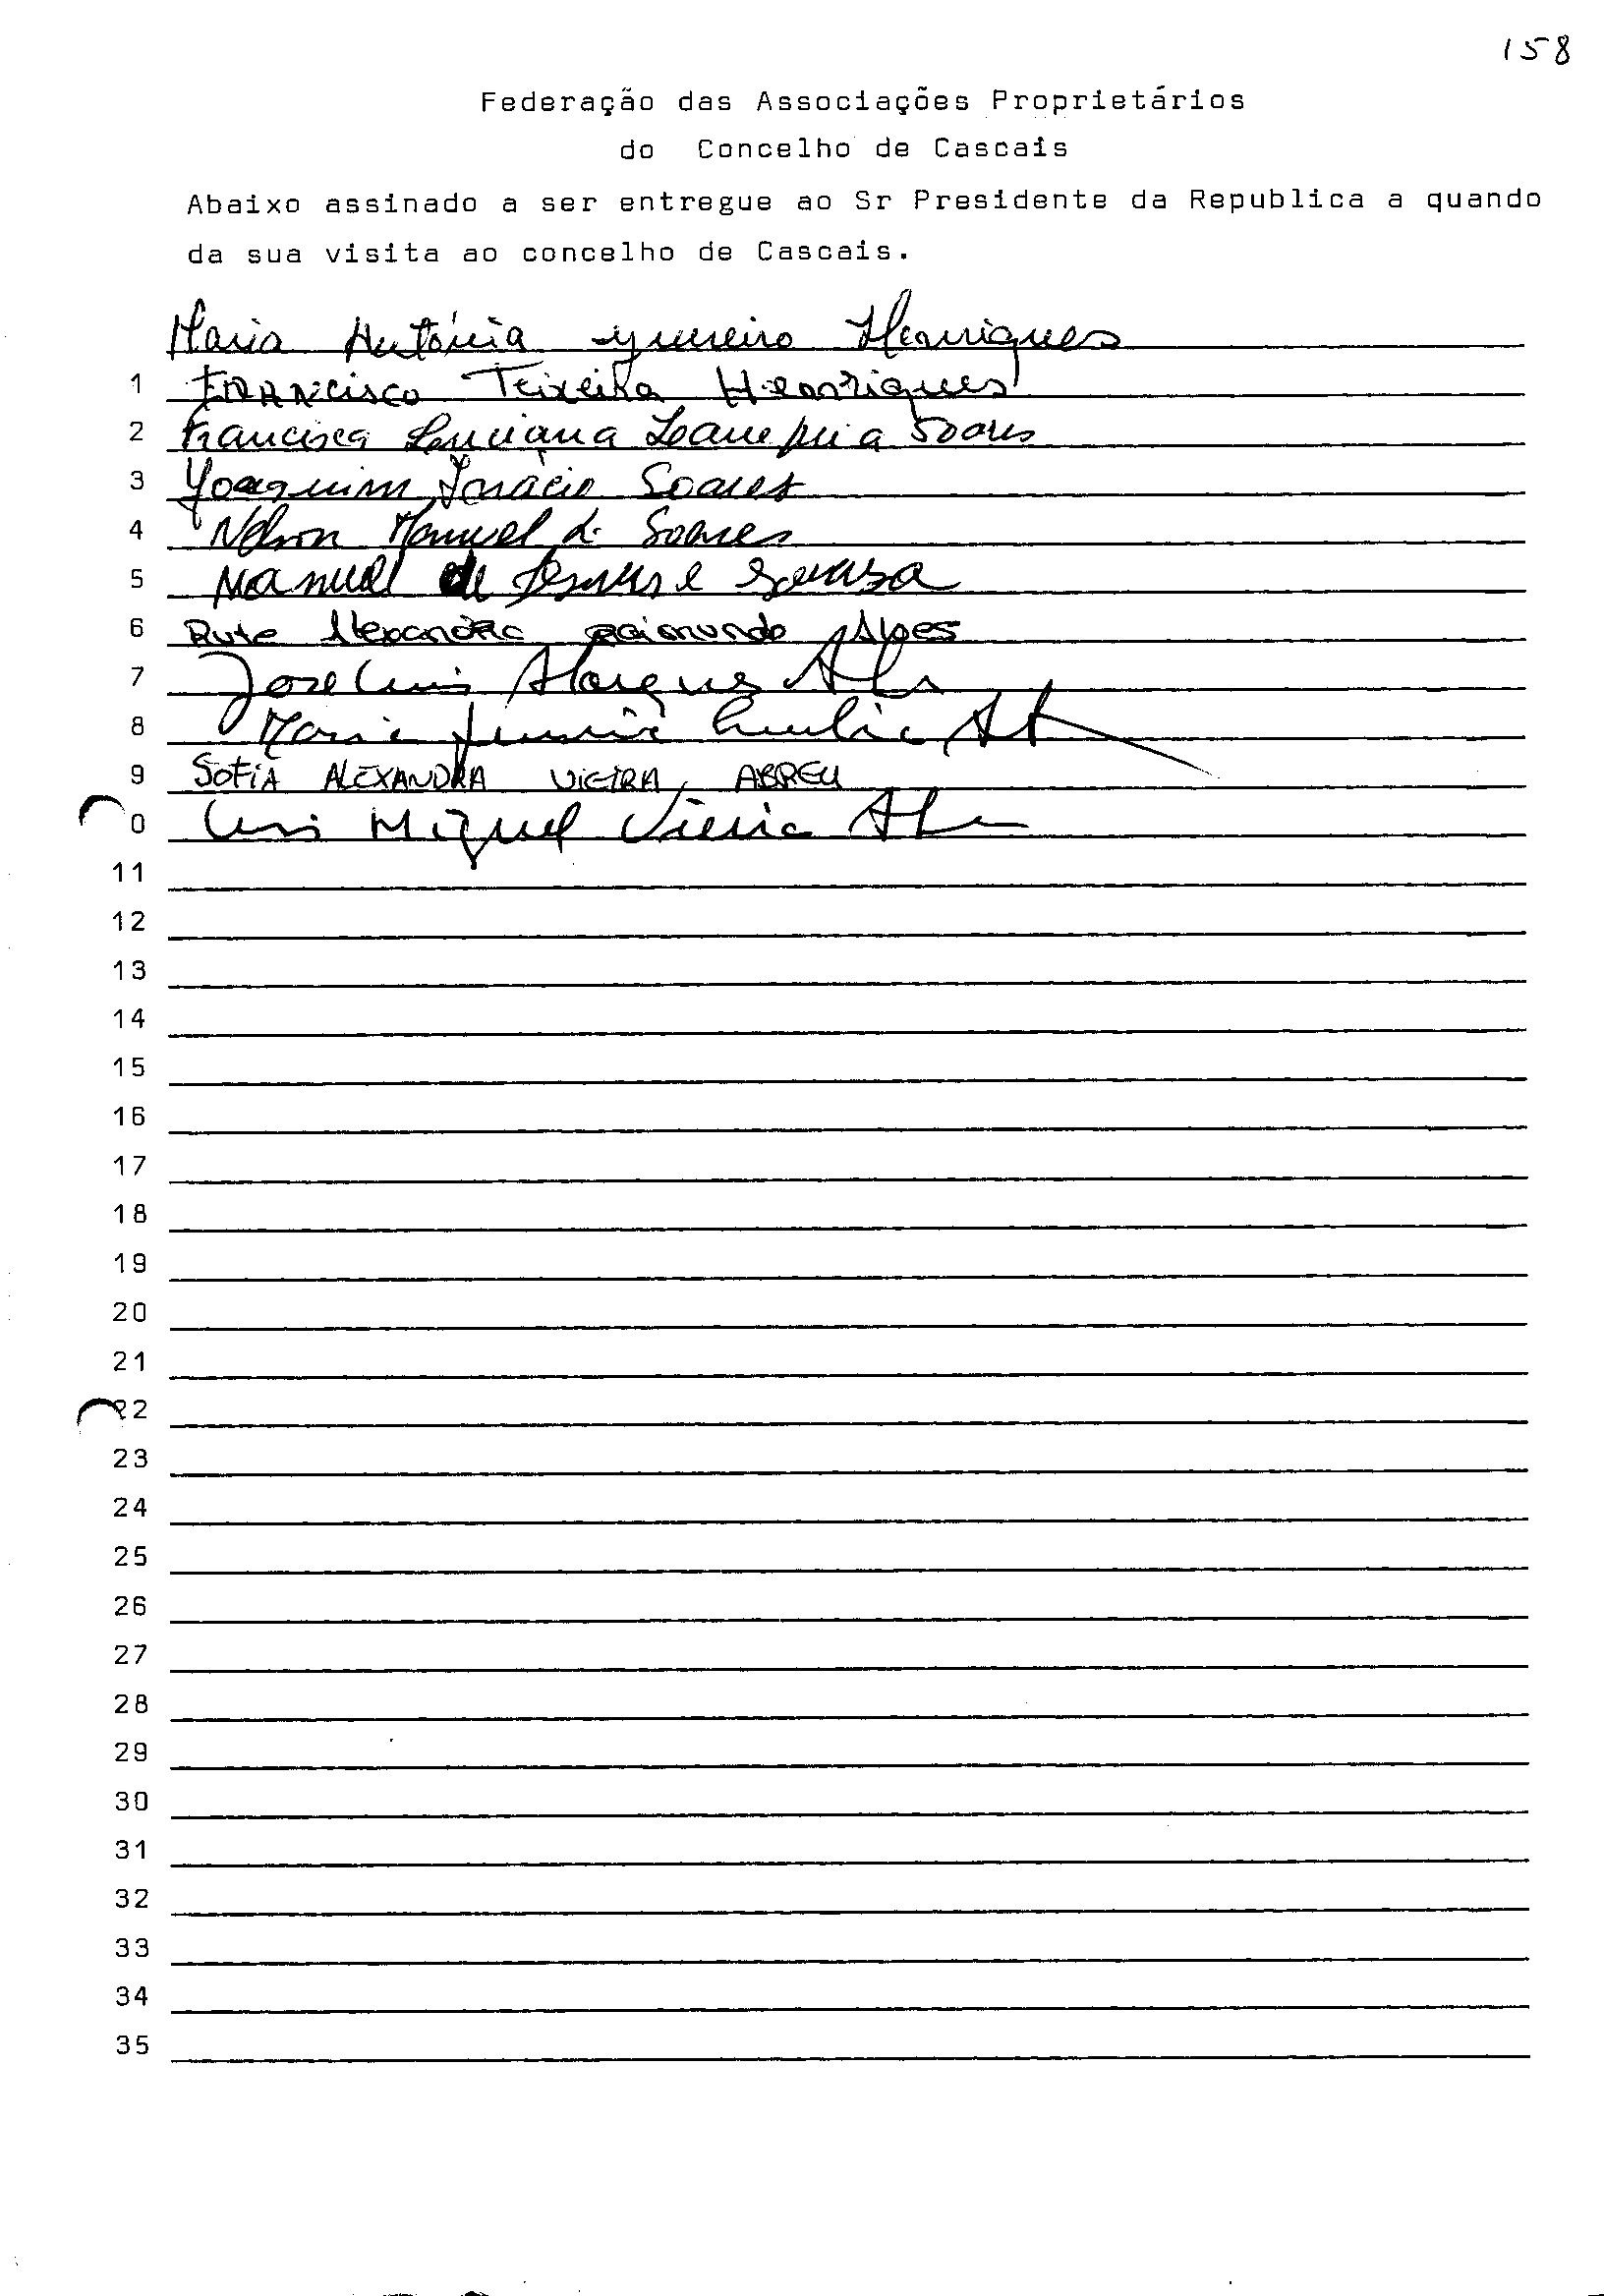 158
Federação das Associações Proprietários
do Concelho de Cascais
Abaixo assinado a ser entregue ao Sr Presidente da Republica a quando
da sua visita ao concelho de Cascais.
Maria Antónia Henriques
1 Francisco Teixeira Henriques
2 Francisca Luciana Soares
3 Joaquim Inácio Soares
4 Nelson Manuel L. Soares
5 Manuel de Sousa
6 Rute Alexandra Raimundo Alves
7 Jose Luis Marques
8 Maria
9 SOFIA ALEXANDRA VIEIRA ABREU
0 Luis Miguel Vieira
11
12
13
14
15
16
17
18
19
20
21
22
23
24
25
26
27
28
29
30
31
32
33
34
35